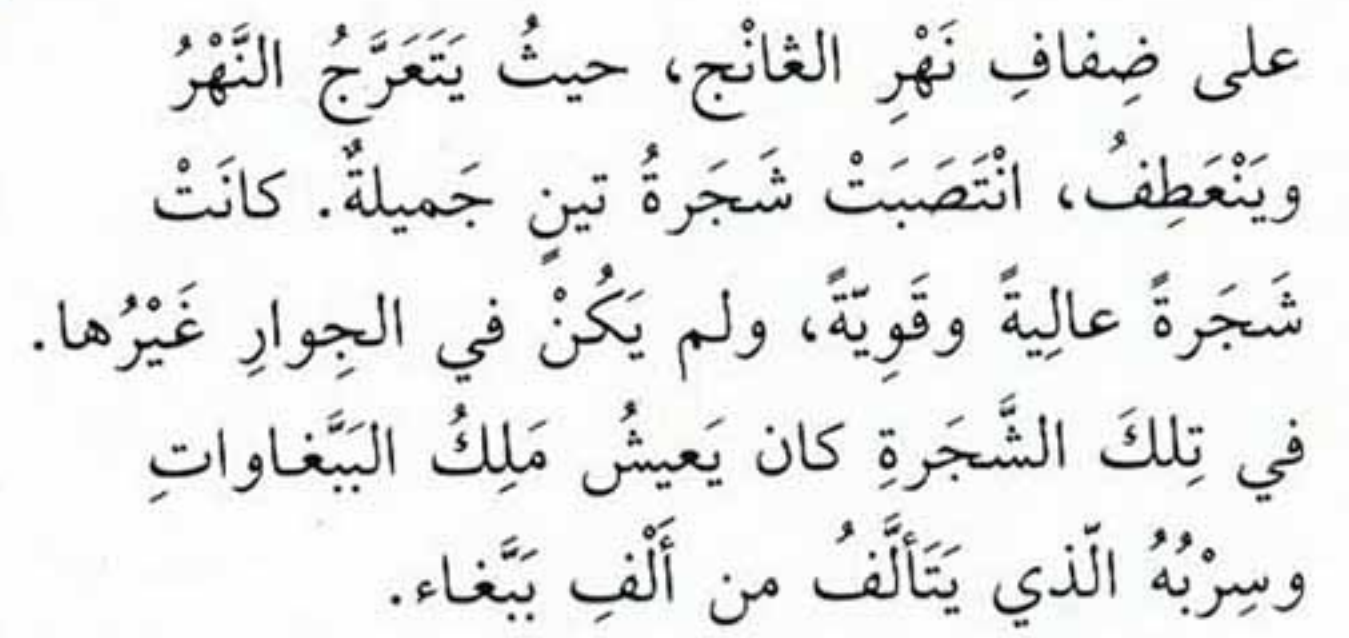 على ضِفافِ نَهْرِ الغانْج، حيثُ يَتَعَرَّجُ النَّهْرُ
ويَنْعَطِفُ، انْتَصَبَتْ شَجَرةُ تينٍ جَميلةٌ. كانَتْ
شَجَرةً عالِيةً وقَوِيّةً، ولم يَكُنْ في الجِوارِ غَيْرُها.
في تِلكَ الشَّجَرةِ كان يَعيشُ مَلِكُ البَبَّغاواتِ
وسِرْبُهُ الّذي يَتَألَّفُ من أَلْفِ بَبَّغاء.